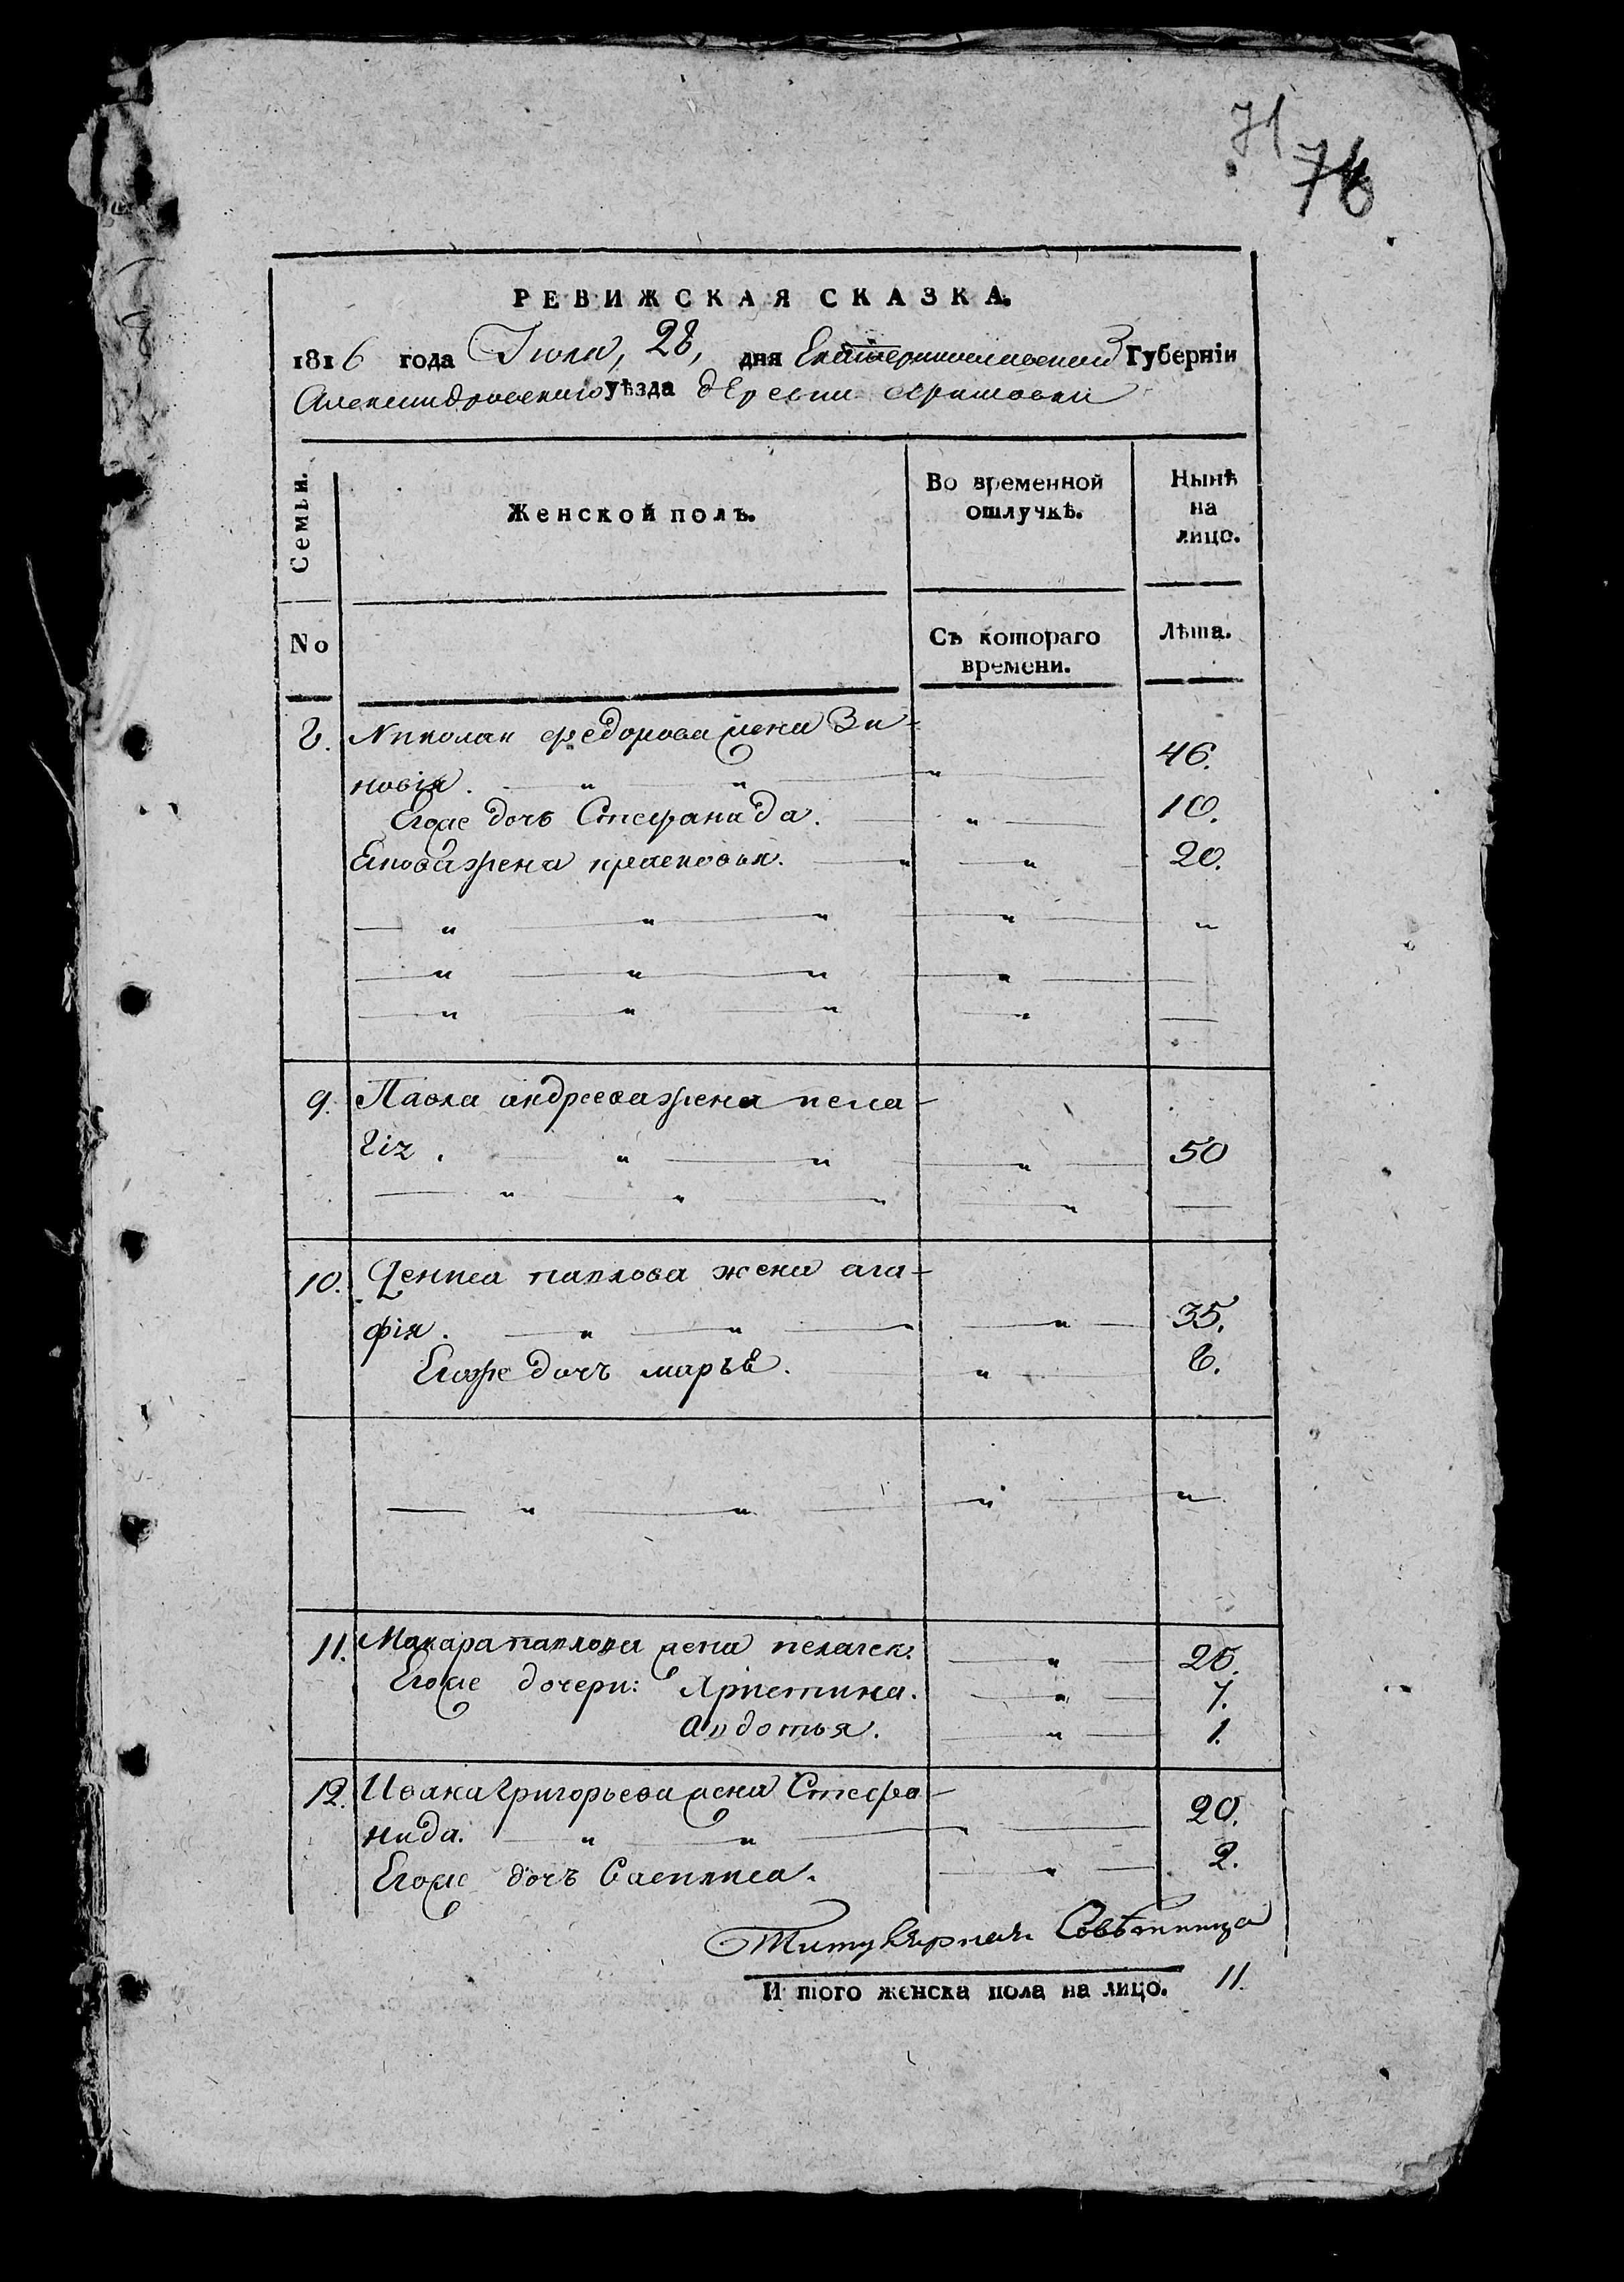 71
76
РЕВИЖСКАЯ СКАЗКА.
1816 года Іюля, 28, дня Екатеринославской Губерніи
Александровскаго уѣзда деревни
Семьи.
Женской полъ.
Во временной отлучкѣ.
Нынѣ на лицо.
No
Съ котораго времени.
Лѣта.
8. Николая федорова жена Зи-
новія. 46.
Егоже дочь Стефанида. 10.
жена прасковья. 20.
9. Павла андреева жена пела-
гія. 50
10. Дениса павлова жена ага-
фія. 35.
Егоже дочъ марья. 8.
11. Макара павлова жена пелагея. 25.
Егоже дочери: Христина. 7.
Авдотья. 1.
12. Ивана Григорьева жена Стефа-
нида. 20.
Егоже дочъ Василиса. 2.
Титулярная Совѣтница
И того женска пола на лицо. 11.